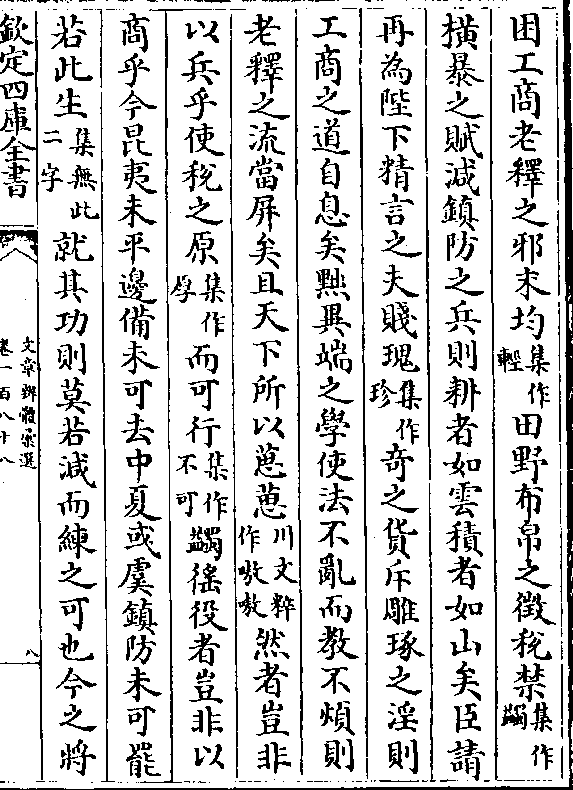 困工商老釋之邪末均集作輕田野布帛之徵稅禁集作蠲
橫暴之賦減鎮防之兵則耕者如雲積者如山矣臣請
再為陛下精言之夫賤瑰集作珍奇之貨斥雕琢之淫則
工商之道自息矣黜異端之學使法不亂而教不煩則
老釋之流當屏矣且天下所以蒽蒽川文粹作嗷嗷然者豈非
以兵乎使稅之原集作厚而可行集作不可蠲徭役者豈非以
商乎今昆夷未平邊備未可去中夏或虞鎮防未可罷
若此生集無此二字就其功則莫若減而練之可也今之將
欽定四庫全書
文章辨體彙選
卷一百八十八
八